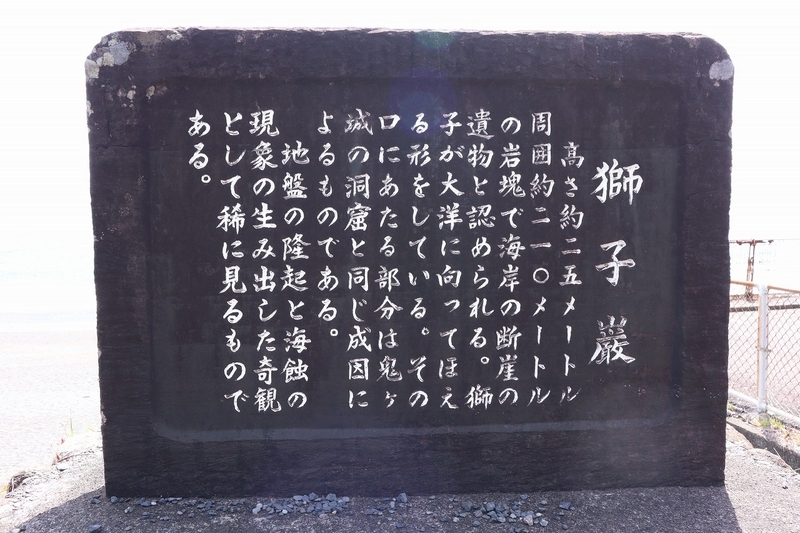 獅子巖
高さ約二五メートル
周囲約二一〇メートル
の岩塊で海岸の断崖の
遺物と認められる。獅
子が大洋に向ってほえ
る形をしている。その
口にあたる部分は鬼ヶ
城の洞窟と同じ成因に
よるものである。
地盤の隆起と海蝕の
現象の生み出した奇観
として稀に見るもので
ある。